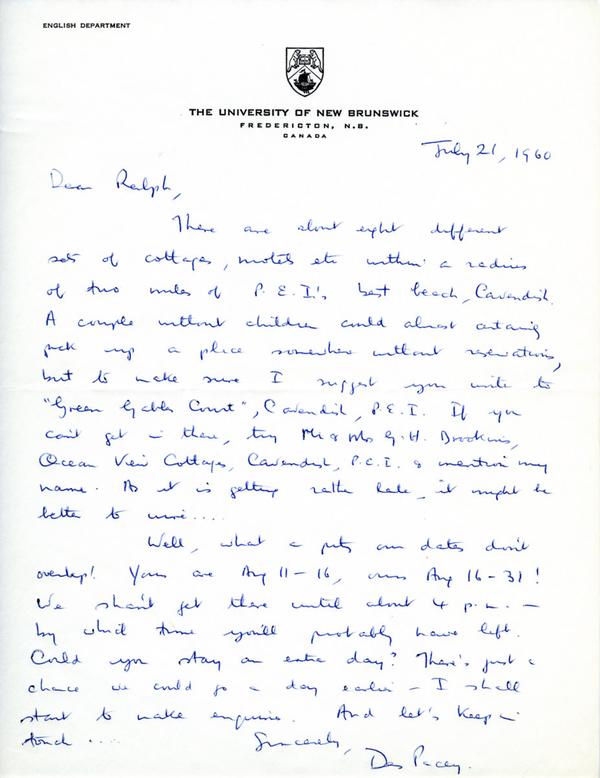 ENGLISH DEPARTMENT
THE UNIVERSITY OF NEW BRUNSWICK
FREDERICTON, N.B.
CANADA
July 21, 1960
Dear Ralph,
There are about eight different
sets of cottages, motels etc within a radius
of two miles of P.E.I.'s best beach, Cavendish.
A couple without children could almost certainly
pick up a place somewhere without reservations,
but to make sure I suggest you write to
"Green Gables Court", Cavendish, P.E.I. If you
can't get in there, try Mr & Mrs G.H. Brookins,
Ocean View Cottages, Cavendish, P.E.I. & mention my
name. As it is getting rather late, it might be
better to wire....
Well, what a pity our dates don't
overlap! Yours are Aug 11-16, ours Aug 16-31!
We shan't get there until about 4 p.m. —
by which time you'll probably have left.
Could you stay an extra day? There's just a
chance we could go a day earlier – I shall
start to make enquiries. And let's keep in
touch ....
Sincerely,
Des Pacey.